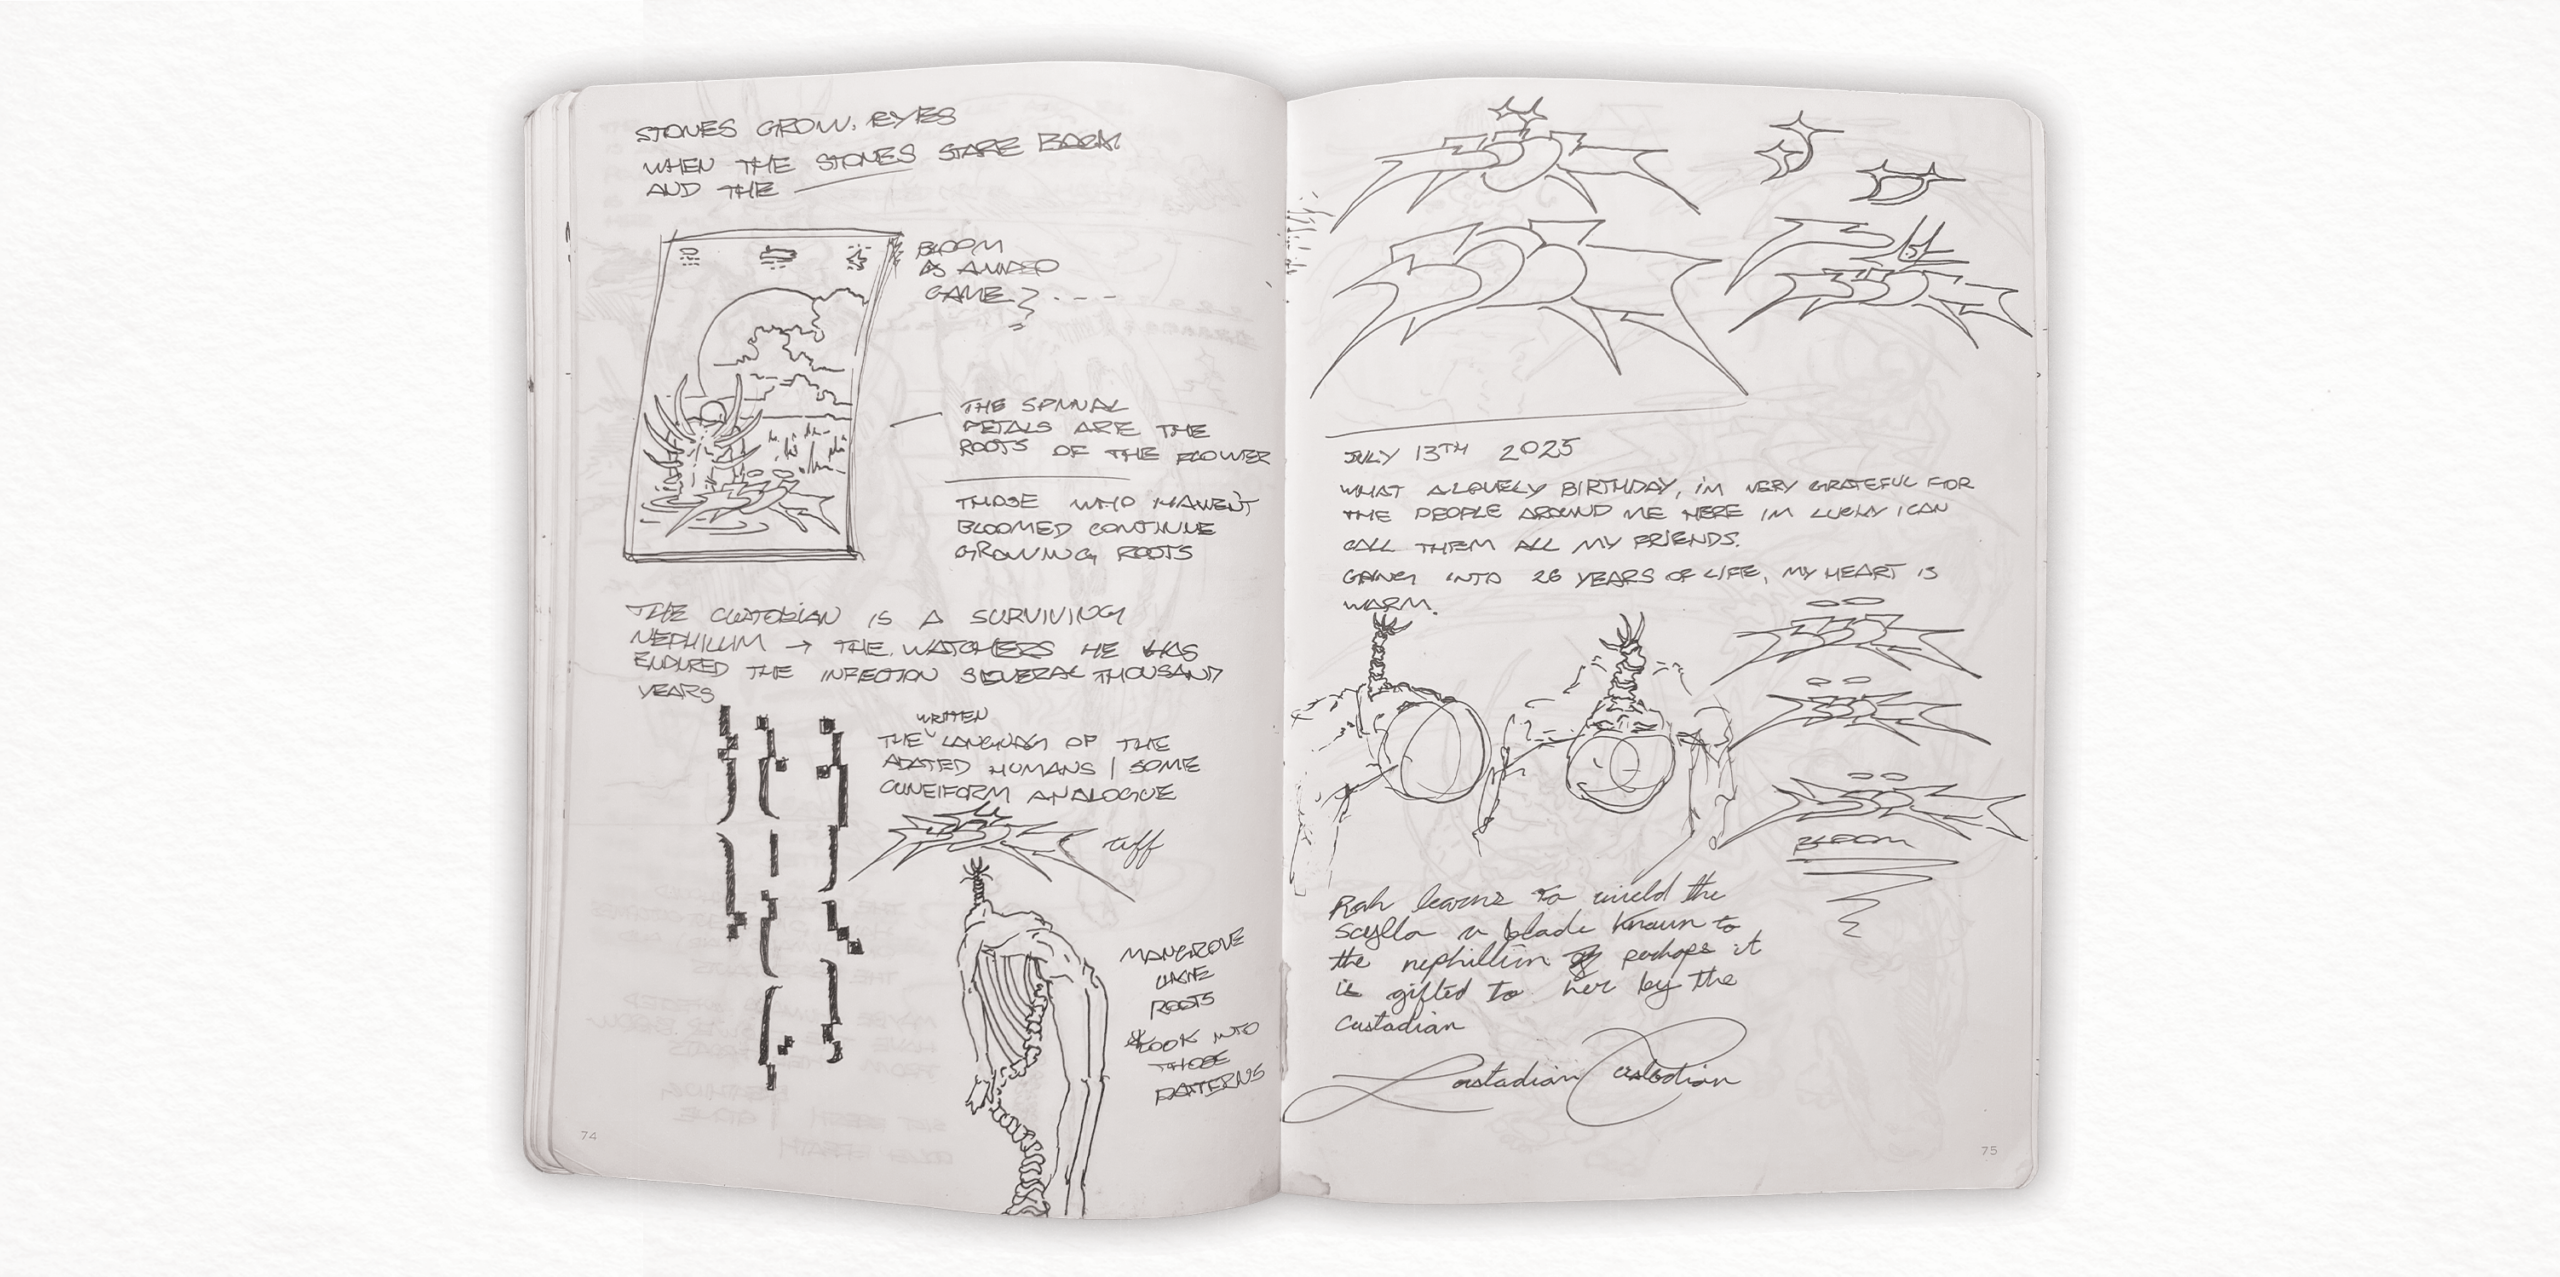 STONES GROW, EYES
WHEN THE STONES STARE BACK
AND THE
BLOOM
AS A VIDEO
GAME
THE SPINAL
PETALS ARE THE
ROOTS OF THE FLOWER
THOSE WHO HAVEN'T
BLOOMED CONTINUE
GROWING ROOTS
THE CUSTODIAN IS A SURVIVING
NEPHILIM → THE WATCHERS HE HAS
ENDURED THE INFECTION SEVERAL THOUSAND
YEARS
WRITTEN
THE LANGUAGE OF THE
ADATED HUMANS | SOME
CUNEIFORM ANALOGUE
tiff
MANGROVE
LIKE
ROOTS
LOOK INTO
THOSE
PATERNS
74
JULY 13TH 2025
WHAT A LOVELY BIRTHDAY, I'M VERY GRATEFUL FOR
THE PEOPLE AROUND ME HERE IM LUCKY I CAN
CALL THEM ALL MY FRIENDS.
GOING INTO 26 YEARS OF LIFE, MY HEART IS
WARM.
BLOOM
Rah learns to wield the
scylla a blade known to
the nephillim perhaps it
is gifted to her by the
custodian
Custodian Custodian
75